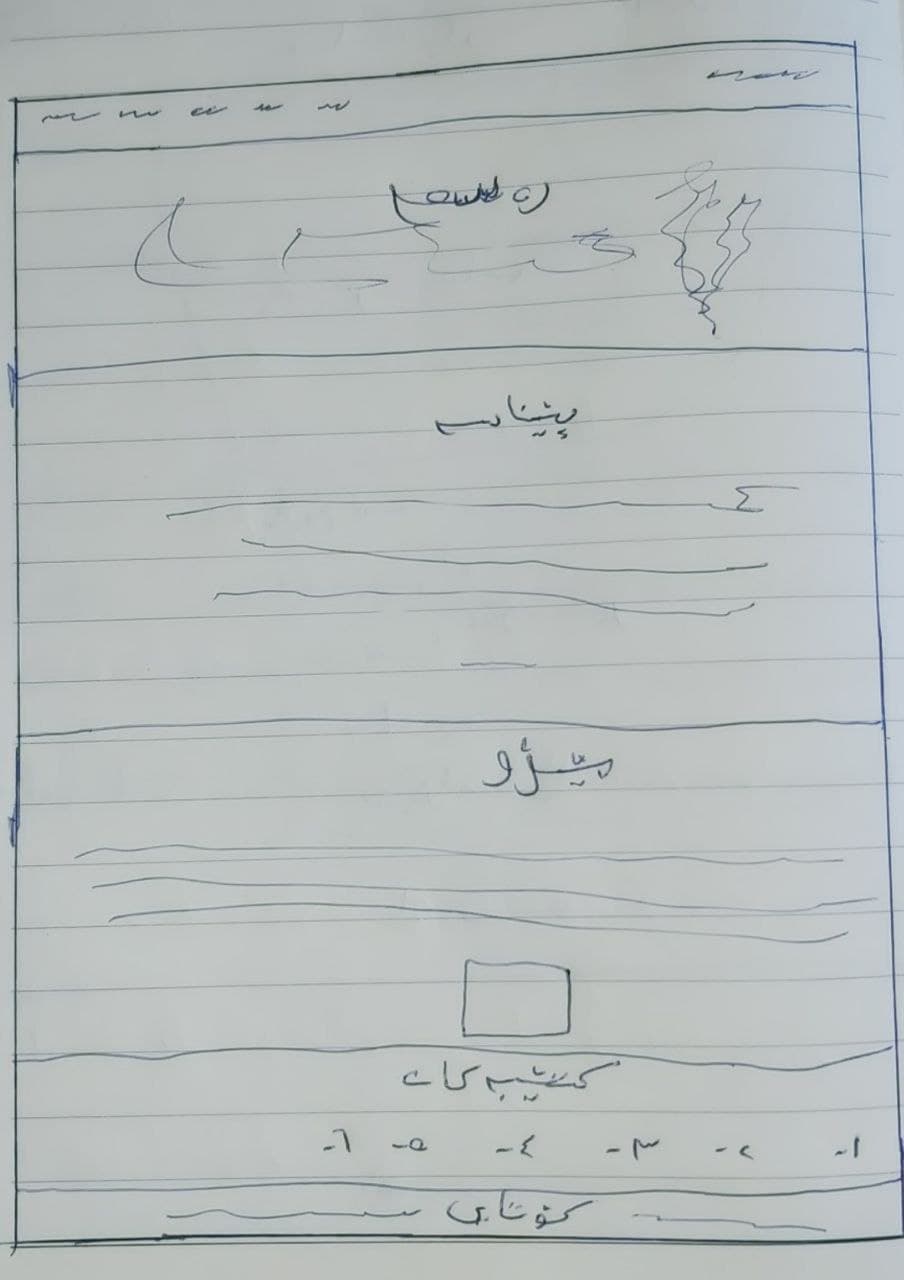 پێناسە
پێژو
کتێبەکان
١- ٢- ٣- ٤- ٥- ٦-
کۆتایی